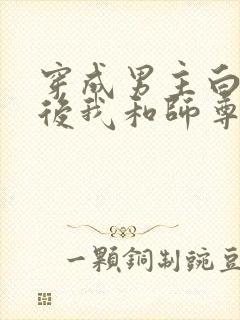 穿成男主白
後我和師尊
一顆銅制豌豆